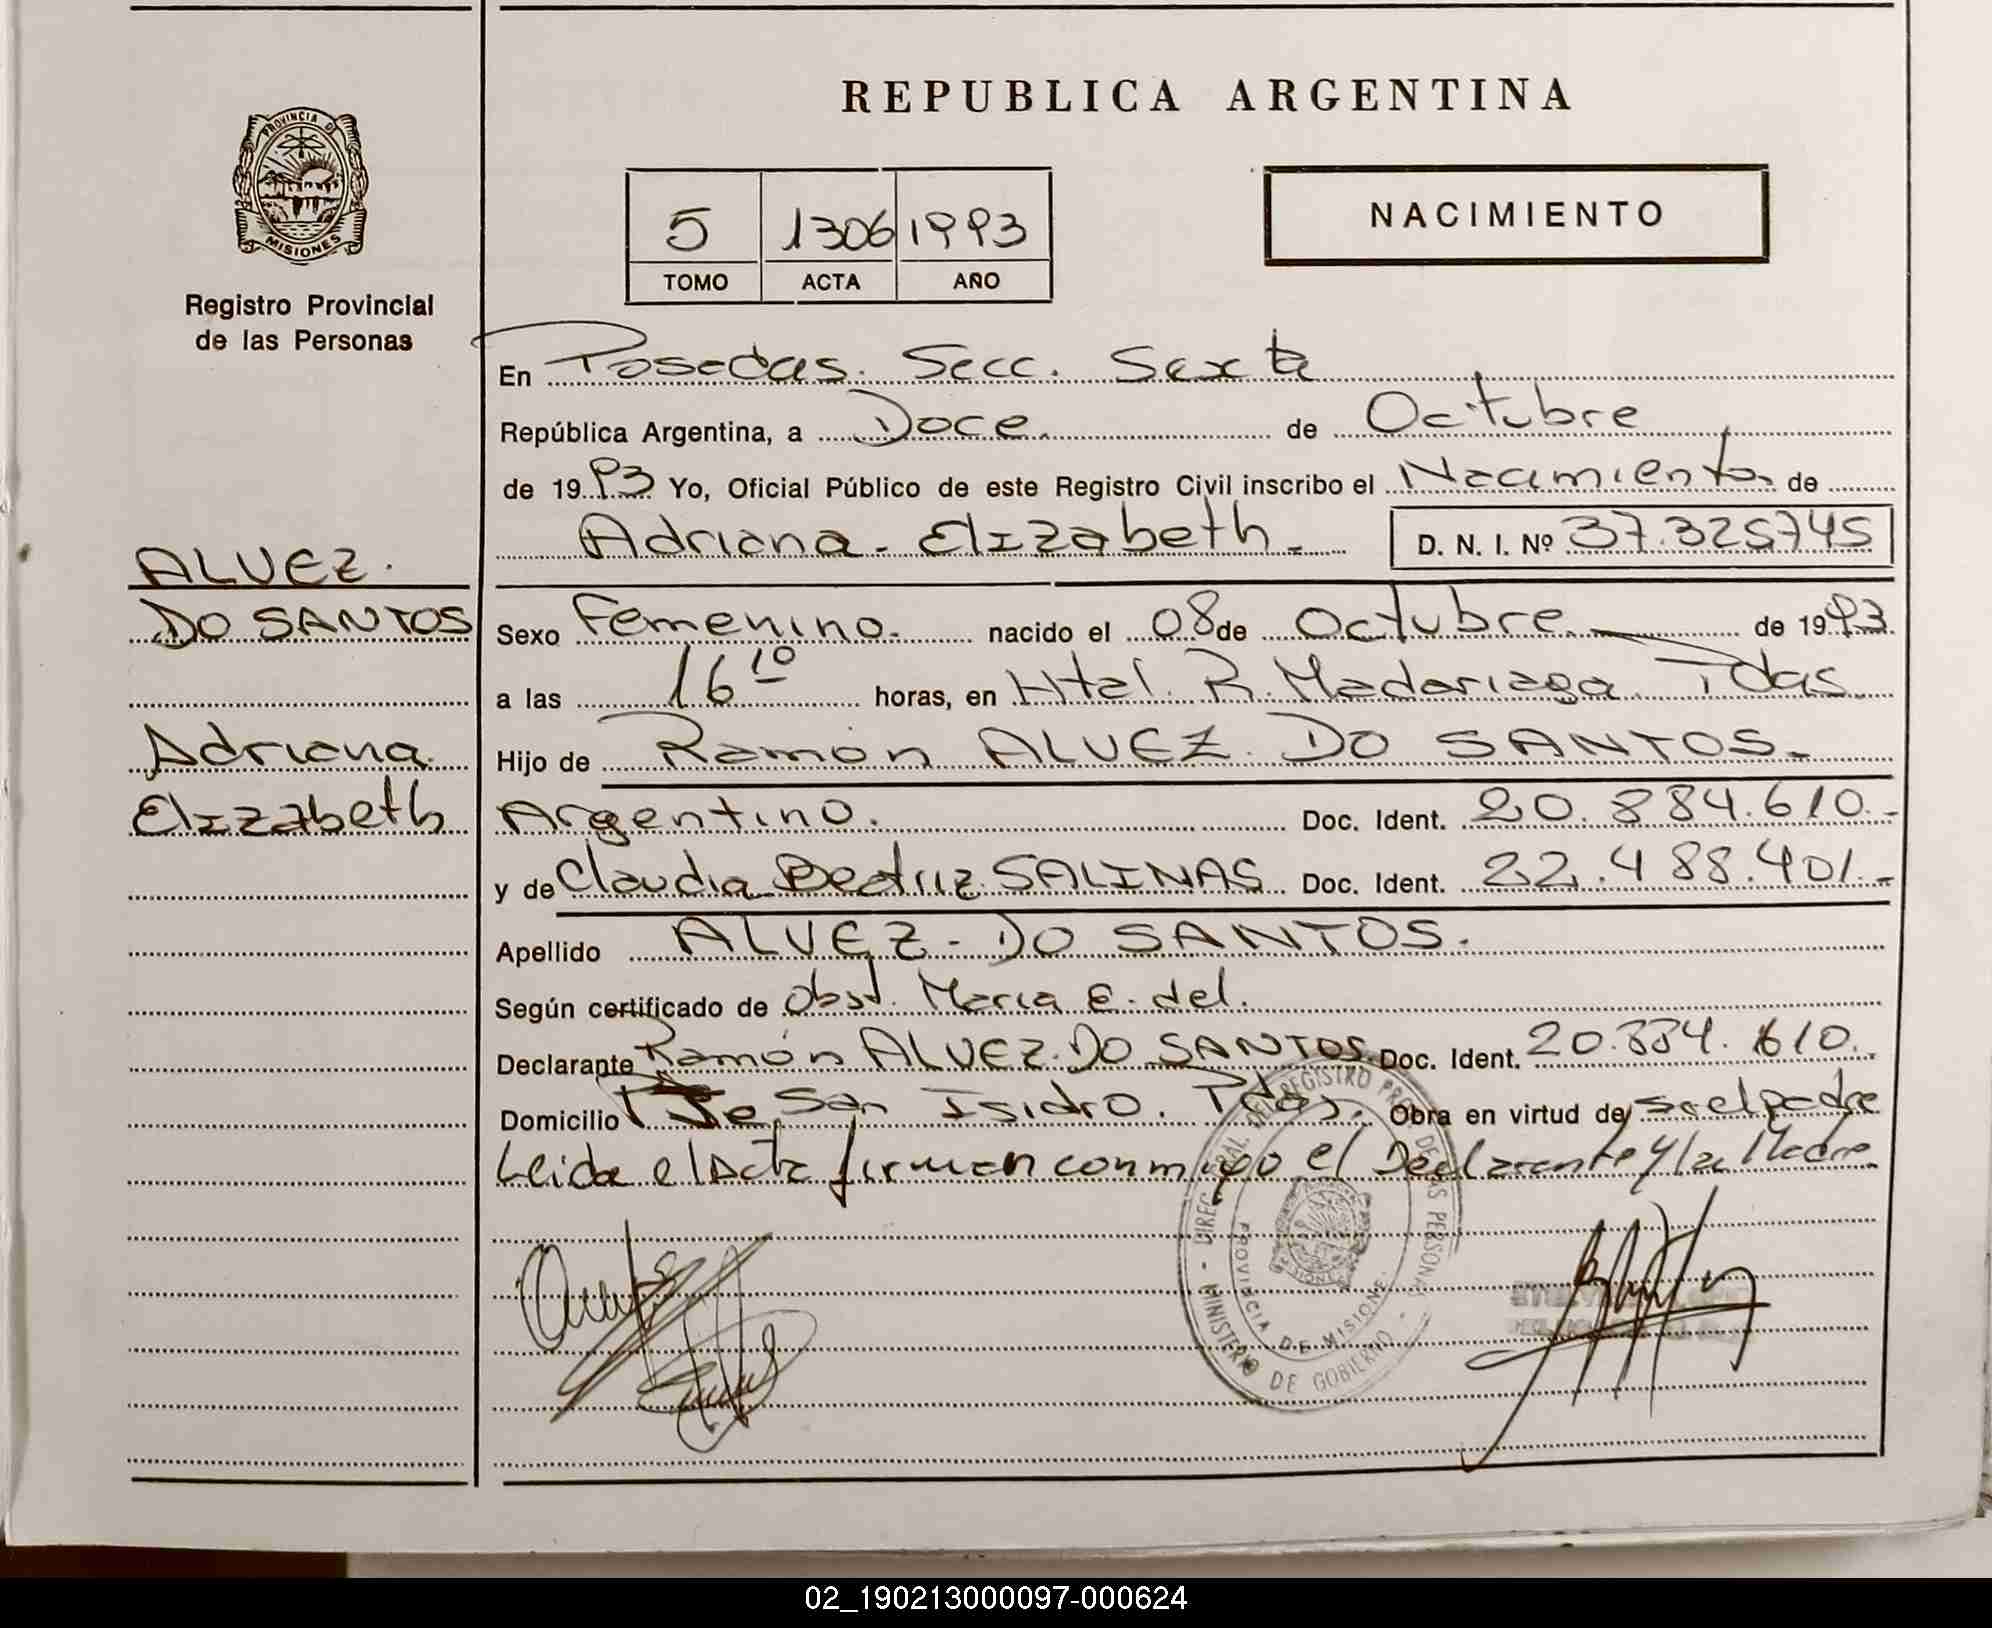 REPUBLICA ARGENTINA
PROVINCIA DE
MISIONES
Registro Provincial
de las Personas
5 1306 1993
TOMO ACTA AÑO
NACIMIENTO
En Posadas. Secc. Sexta
República Argentina, a Doce. de Octubre
de 1993 Yo, Oficial Público de este Registro Civil inscribo el Nacimiento de
Adriana - Elizabeth. D. N. I. Nº 37.325745
ALVEZ.
DO SANTOS
Adriana
Elizabeth
Sexo Femenino. nacido el 08 de Octubre de 1993
a las 16 10 horas, en Htal. R. Madariaga Pdas.
Hijo de Ramón ALVEZ. DO SANTOS.
Argentino. Doc. Ident. 20.884.610.-
y de Claudia Beatriz SALINAS Doc. Ident. 22.488.401.-
Apellido ALVEZ - DO SANTOS.
Según certificado de Obst. Maria E. del.
Declarante Ramón ALVEZ. DO SANTOS Doc. Ident. 20.884.610.
Domicilio San Isidro. Pdas. Obra en virtud de ser el padre
Leida el Acta firman conmigo el Declarante y la Madre
DIREC. GRAL. DEL REGISTRO PROV. DE LAS PERSONAS
PROVINCIA DE MISIONES
MINISTERIO DE GOBIERNO
02_190213000097-000624